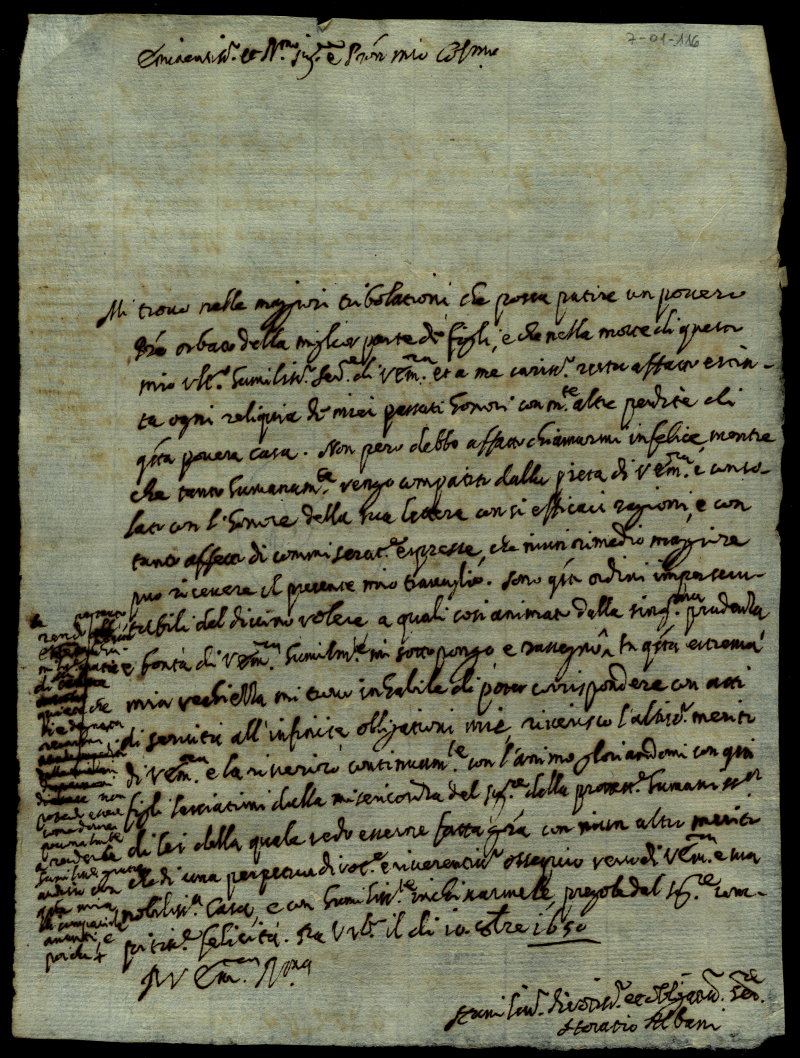 7-01-116
Eminentiss.r et R.mo sig.re e Pron mio Col.mo
Mi trovo nelle maggiori tribolationi che possa patire un povero
Pre orbato della miglior parte de figli, e che nella morte di questo
mio ult.o humiliss.o Ser.re di V Em.za et a me cariss.o resta affatto estin-
ta ogni reliquia de miei passati honori con m.te altre perdite di
q.sta povera casa. Non però debbo affatto chiamarmi infelice, mentre
che tanto humanam.te vengo compatito dalla pietà di V Em.za e conso-
lato con l'honore della sua lettera con si efficaci ragioni, e con
tanto affetto di commiserat.e espresse, che niun rimedio maggiore
può ricevere il presente mio travaglio. Sono q.sti ordini imperscru-
tabili del divino volere a quali così animato dalla sing.ma prudenza
e bontà di V Em.za humilm.te mi sottopongo e rassegno In q.sta estrema
mia vechiezza mi trovo inhabile di poter corrispondere con atti
di servitù all'infinite obligationi mie, riverisco l'altiss.o merito
di V Em.za e la riverirò continuam.te con l'animo gloriandomi con q.sti
figli lasciatimi dalla misericordia del Sig.re della protett.e humaniss.a
di lei della quale vedo esserne fatta gra con niun altro merito
che di una perpetua divot.e e riverentiss.o ossequio verso di V Em.za e sua
nobiliss.a Casa, e con humiliss.te inchinarmele, pregole dal Sig.re com-
pitiss.e felicità. Da Urb.o il dì 10 8bre 1650
Di V Em.za R.ma
rendo
quiete che
non
possa essere
come dovrei
a renderle
humilis. gratie
ardisco con
q.sta mia
e
perche +
Humiliss.o divotiss.o et obligatiss.o Ser.re
Horatio Albani